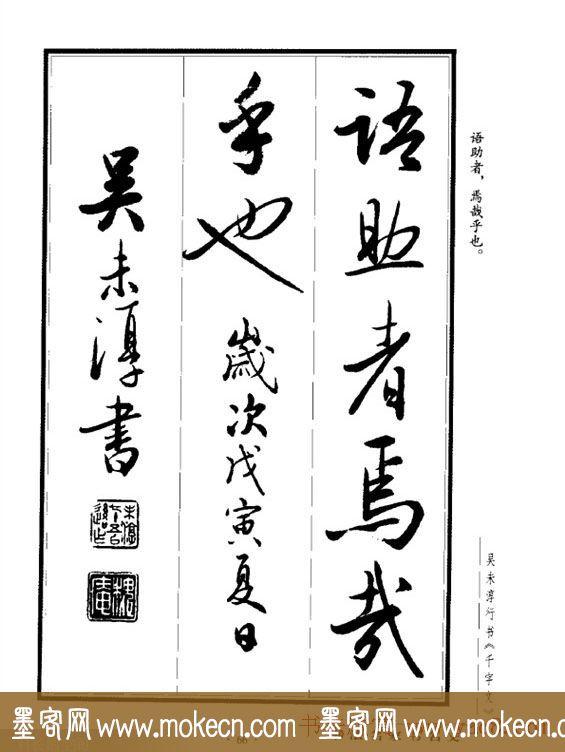 语助者焉哉
乎也 歲次戊寅夏日
吴未淳書
语助者，焉哉乎也。
吴未淳行书《千字文》
墨客网www.mokecn.com 墨客网www.mokecn.com